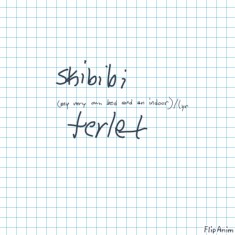 skibibi
(my very own bed and an indoor)//lyr
terlet
FlipAnim